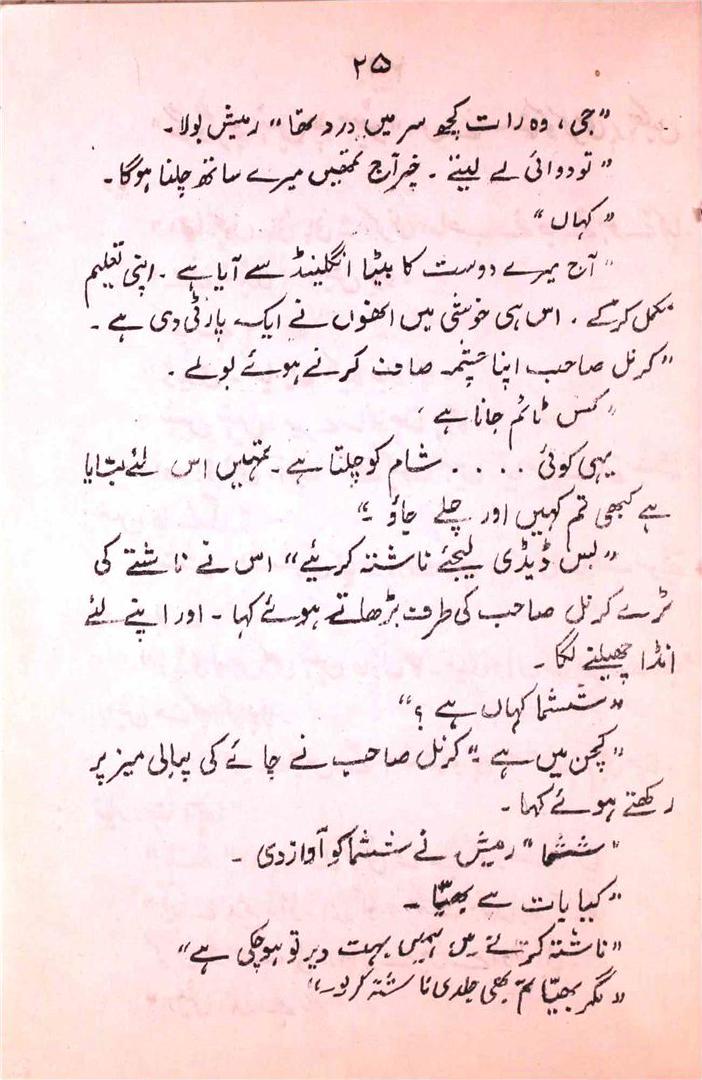 ۲۵
"جی، وہ رات کچھ سر میں درد تھا" رمیش بولا۔
"تو دوائی لے لیتے۔ خیر آج تمھیں میرے ساتھ چلنا ہوگا۔
"کہاں"
"آج میرے دوست کا بیٹا انگلینڈ سے آیا ہے۔ اپنی تعلیم
مکمل کرکے۔ اس ہی خوشی میں انھوں نے ایک پارٹی دی ہے۔
"کرنل صاحب اپنا چشمہ صاف کرتے ہوئے بولے۔
"کس ٹائم جانا ہے،
یہی کوئی .... شام کو چلنا ہے۔ تمہیں اس لئے بتایا
ہے کبھی تم کہیں اور چلے جاؤ۔"
"بس ڈیڈی لیجئے ناشتہ کرئیے" اس نے ناشتے کی
ٹرے کرنل صاحب کی طرف بڑھاتے ہوئے کہا۔ اور اپنے لئے
انڈا چھیلنے لگا۔
"ششما کہاں ہے؟"
"کچن میں ہے۔" کرنل صاحب نے چائے کی پیالی میز پر
رکھتے ہوئے کہا۔
"ششما" رمیش نے ششما کو آواز دی۔
"کیا بات ہے بھیّا۔
"ناشتہ کرتے میں ہمیں بہت دیر تو ہوچکی ہے"
"مگر بھیّا تم بھی جلدی ناشتہ کرلو۔"